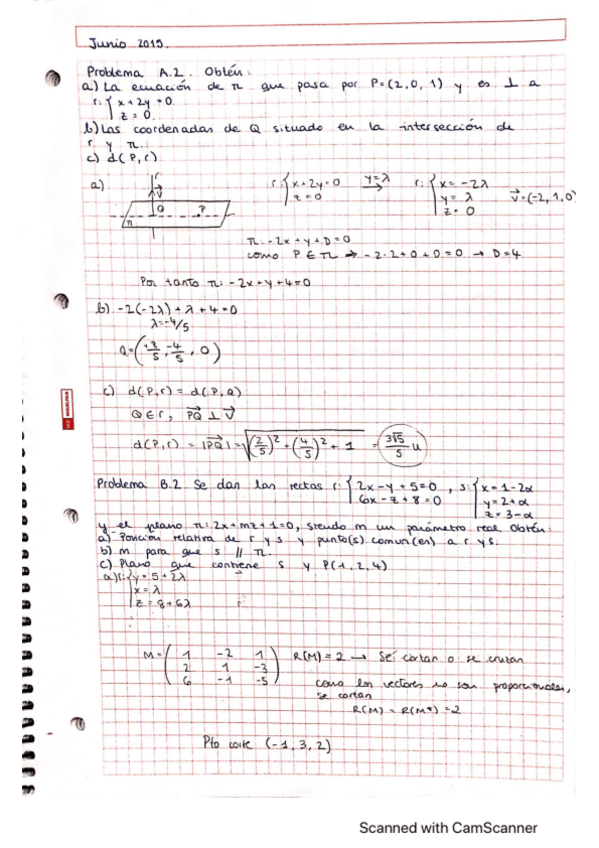 Junio 2019.
Problema A.2. Obtén:
a) La ecuación de π que pasa por P=(2,0,1) y es ⊥ a
r: { x+2y=0
z=0.
b) Las coordenadas de Q situado en la intersección de
r y π.
c) d(P,r)
a)
r
v
Q
P
π
r: { x+2y=0 y=λ → r: { x=-2λ
z=0 y=λ v=(-2,1,0)
z=0
π: -2x+y+D=0
como P∈π → -2·2+0+D=0 → D=4
Por tanto π: -2x+y+4=0
b) -2(-2λ)+λ+4=0
λ=-4/5
Q=(+8/5, -4/5, 0)
c) d(P,r) = d(P,Q)
Q∈r, PQ ⊥ v
d(P,r) = |PQ| = √((2/5)²+(4/5)²+1) = 3√5/5 u
Problema B.2 Se dan las rectas r: { 2x-y+5=0 , s: { x=1-2α
6x-z+8=0 y=2+α
z=3-α
y el plano π: 2x+mz+1=0, siendo m un parámetro real. Obtén:
a) Posición relativa de r y s y punto(s) comun(en) a r y s.
b) m para que s // π.
c) Plano que contiene s y P(1,2,4)
a) r: { y=5+2λ
x=λ
z=8+6λ
M= ( 1 -2 1 ) R(M)=2 → Se cortan o se cruzan
2 1 -3
6 -1 -5
como los vectores no son proporcionales,
se cortan
R(M)=R(M*)=2
Pto corte (-1,3,2)
Scanned with CamScanner